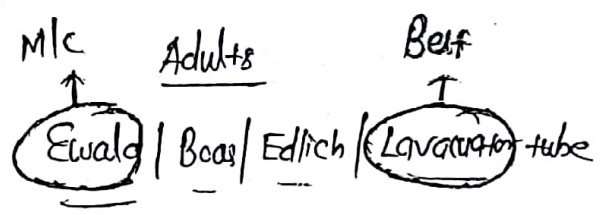 M/C Adults Best
Ewald | Boas | Edlich | Lavacuator tube